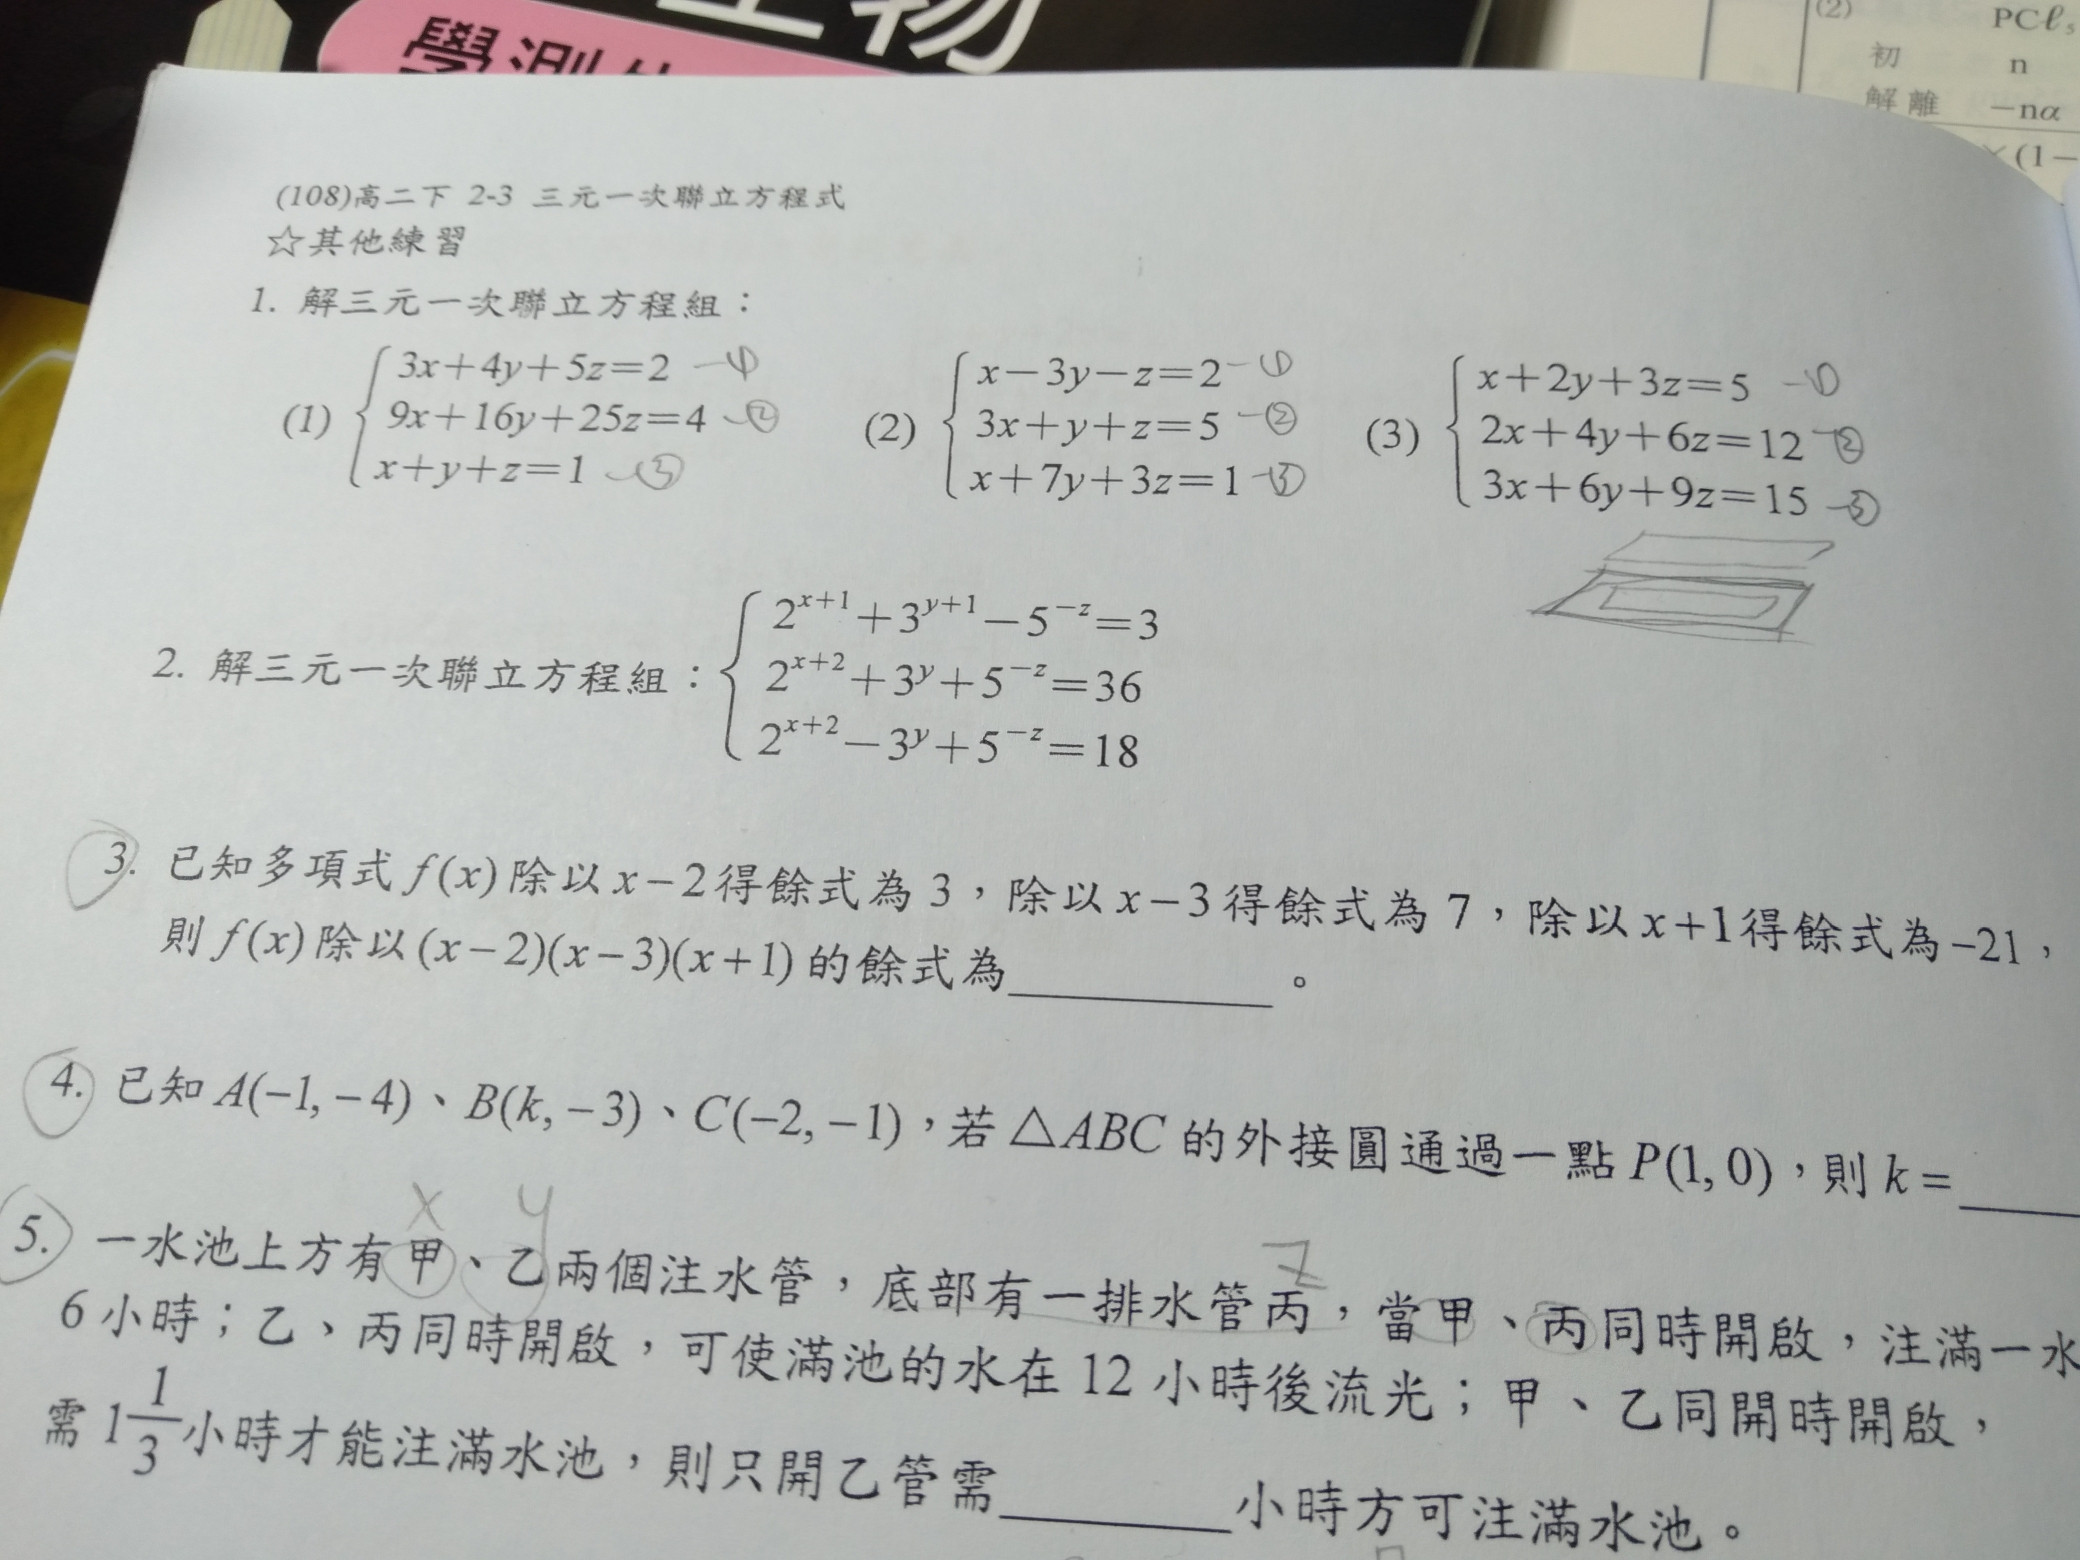 生物
學測
(2)
PCℓ₅
初 n
解離 −nα
(1−
(108)高二下 2-3 三元一次聯立方程式
☆其他練習
1. 解三元一次聯立方程組：
(1) 3x+4y+5z=2 —①
9x+16y+25z=4 —②
x+y+z=1 —③
(2) x−3y−z=2 —①
3x+y+z=5 —②
x+7y+3z=1 —③
(3) x+2y+3z=5 —①
2x+4y+6z=12 —②
3x+6y+9z=15 —③
2. 解三元一次聯立方程組：
2^{x+1}+3^{y+1}−5^{−z}=3
2^{x+2}+3^{y}+5^{−z}=36
2^{x+2}−3^{y}+5^{−z}=18
3. 已知多項式 f(x) 除以 x−2 得餘式為 3，除以 x−3 得餘式為 7，除以 x+1 得餘式為 −21，
則 f(x) 除以 (x−2)(x−3)(x+1) 的餘式為________。
4. 已知 A(−1, −4)、B(k, −3)、C(−2, −1)，若 △ABC 的外接圓通過一點 P(1, 0)，則 k =____
x y z
5. 一水池上方有甲、乙兩個注水管，底部有一排水管丙，當甲、丙同時開啟，注滿一水
6 小時；乙、丙同時開啟，可使滿池的水在 12 小時後流光；甲、乙同開時開啟，
需 1 1/3 小時才能注滿水池，則只開乙管需________小時方可注滿水池。